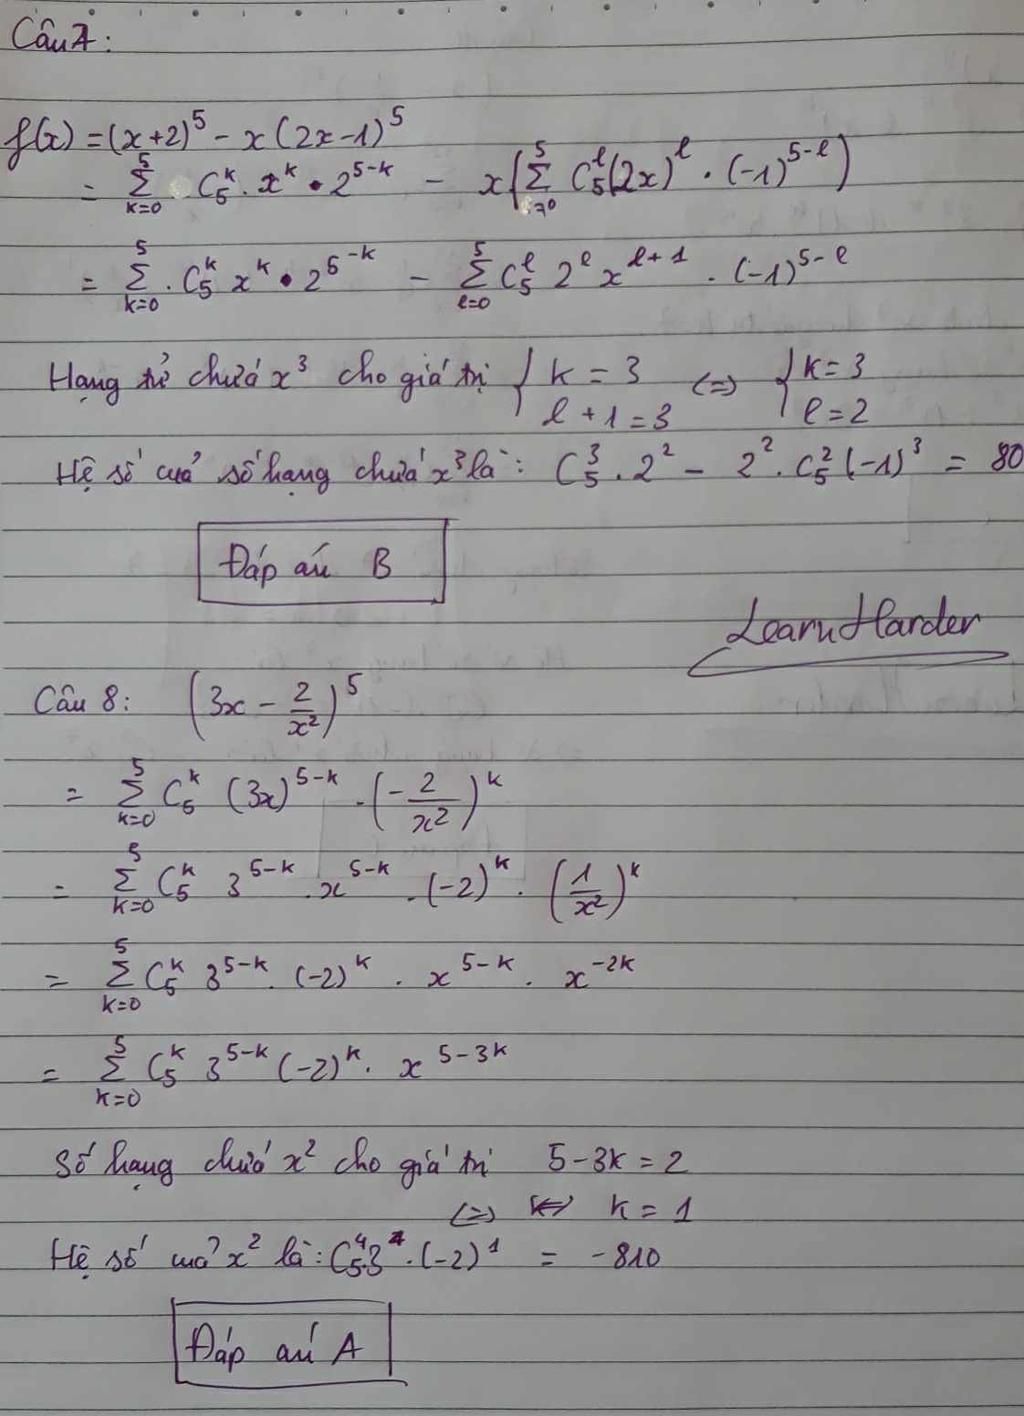 Câu 7:
f(x) = (x+2)^5 - x(2x-1)^5
= \sum_{k=0}^{5} C_5^k . x^k . 2^{5-k} - x(\sum_{l=0}^{5} C_5^l (2x)^l . (-1)^{5-l})
= \sum_{k=0}^{5} . C_5^k x^k . 2^{5-k} - \sum_{l=0}^{5} C_5^l 2^l x^{l+1} . (-1)^{5-l}
Hạng tử chứa x^3 cho giá trị { k = 3 ; l + 1 = 3 <=> { k = 3 ; l = 2
Hệ số của số hạng chứa x^3 là: C_5^3 . 2^2 - 2^2 . C_5^2 (-1)^3 = 80
Đáp án B
LearnHarder
Câu 8: (3x - \frac{2}{x^2})^5
= \sum_{k=0}^{5} C_5^k (3x)^{5-k} . (-\frac{2}{x^2})^k
= \sum_{k=0}^{5} C_5^k 3^{5-k} . x^{5-k} . (-2)^k . (\frac{1}{x^2})^k
= \sum_{k=0}^{5} C_5^k 3^{5-k} . (-2)^k . x^{5-k} . x^{-2k}
= \sum_{k=0}^{5} C_5^k 3^{5-k} (-2)^k . x^{5-3k}
Số hạng chứa x^2 cho giá trị 5 - 3k = 2
<=> <=> k = 1
Hệ số của x^2 là: C_5^4 . 3^4 . (-2)^1 = -810
Đáp án A